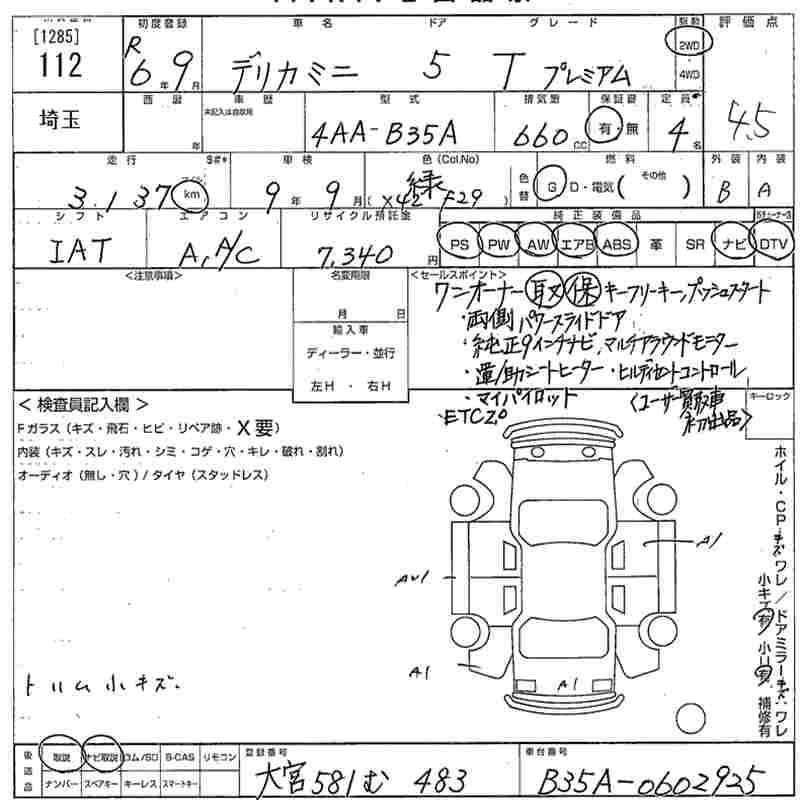 [1285]
112
埼玉
初度登録
R 6年 9月
車名
デリカミニ
ドア
5
グレード
T プレミアム
駆動
2WD
4WD
評価点
4.5
西暦
年
車歴
未記入は自家用
型式
4AA-B35A
排気量
660 cc
保証書
有・無
定員
4名
走行
S#*
3,137 km
車検
9年 9月
色(Col.No)
緑
(X42 F29)
色替
燃料
G D・電気( その他 )
外装
B
内装
A
シフト
IAT
エアコン
A,A/C
リサイクル預託金
7,340 円
純正装備品
PS PW AW エアB ABS 革 SR ナビ DTV
<注意事項>
名変期限
月 日
輸入車
ディーラー・並行
左H ・ 右H
<セールスポイント>
ワンオーナー 取 保 キーフリーキー,プッシュスタート
・両側パワースライドドア
・純正9インチナビ,マルチアラウンドモニター
・運/助シートヒーター・ヒルディセントコントロール
・マイパイロット
ETC2.0
<ユーザー買取車
初出品>
キーロック
< 検査員記入欄 >
Fガラス(キズ・飛石・ヒビ・リペア跡・X要)
内装(キズ・スレ・汚れ・シミ・コゲ・穴・キレ・破れ・割れ)
オーディオ(無し・穴)/タイヤ(スタッドレス)
A1
AU1
A1
A1
トリム小キズ.
ホイル・CP キズ ワレ / ドアミラー キズ ワレ
小キズ有 小凹有 補修有
後送品
取説 ナビ取説 ロム/SD B-CAS リモコン
ナンバー スペアキー キーレス スマートキー
登録番号
大宮 581 む 483
車台番号
B35A-0602925